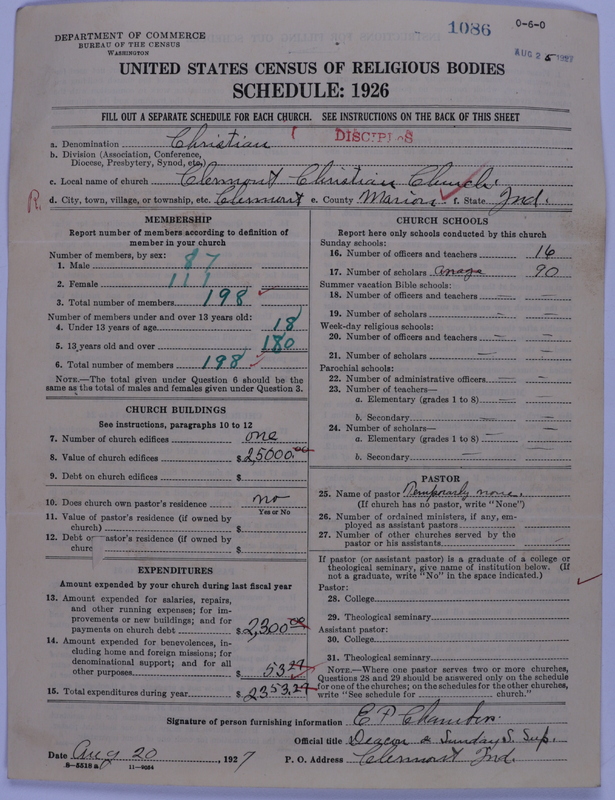 1086
0-6-0
DEPARTMENT OF COMMERCE
BUREAU OF THE CENSUS
WASHINGTON
AUG 25 1927
UNITED STATES CENSUS OF RELIGIOUS BODIES
SCHEDULE: 1926
FILL OUT A SEPARATE SCHEDULE FOR EACH CHURCH. SEE INSTRUCTIONS ON THE BACK OF THIS SHEET
a. Denomination Christian DISCIPLES
b. Division (Association, Conference,
Diocese, Presbytery, Synod, etc.)
c. Local name of church Clermont Christian Church
R. d. City, town, village, or township, etc. Clermont e. County Marion f. State Ind.
MEMBERSHIP
Report number of members according to definition of
member in your church
Number of members, by sex:
1. Male 87
2. Female 111
3. Total number of members 198
Number of members under and over 13 years old:
4. Under 13 years of age 18
5. 13 years old and over 180
6. Total number of members 198
NOTE.—The total given under Question 6 should be the
same as the total of males and females given under Question 3.
CHURCH BUILDINGS
See instructions, paragraphs 10 to 12
7. Number of church edifices one
8. Value of church edifices $ 25000.00
9. Debt on church edifices $
10. Does church own pastor's residence no
Yes or No
11. Value of pastor's residence (if owned by
church) $
12. Debt on pastor's residence (if owned by
church $
EXPENDITURES
Amount expended by your church during last fiscal year
13. Amount expended for salaries, repairs,
and other running expenses; for im-
provements or new buildings; and for
payments on church debt $ 2,300.00
14. Amount expended for benevolences, in-
cluding home and foreign missions; for
denominational support; and for all
other purposes $ 53.29
15. Total expenditures during year $ 2353.29
CHURCH SCHOOLS
Report here only schools conducted by this church
Sunday schools:
16. Number of officers and teachers 16
17. Number of scholars 90
Summer vacation Bible schools:
18. Number of officers and teachers —
19. Number of scholars —
Week-day religious schools:
20. Number of officers and teachers —
21. Number of scholars —
Parochial schools:
22. Number of administrative officers —
23. Number of teachers—
a. Elementary (grades 1 to 8) —
b. Secondary —
24. Number of scholars—
a. Elementary (grades 1 to 8) —
b. Secondary —
PASTOR
25. Name of pastor Temporarly none.
(If church has no pastor, write "None")
26. Number of ordained ministers, if any, em-
ployed as assistant pastors
27. Number of other churches served by the
pastor or his assistants
If pastor (or assistant pastor) is a graduate of a college or
theological seminary, give name of institution below. (If
not a graduate, write "No" in the space indicated.)
Pastor:
28. College
29. Theological seminary
Assistant pastor:
30. College
31. Theological seminary
NOTE.—Where one pastor serves two or more churches,
Questions 28 and 29 should be answered only on the schedule
for one of the churches; on the schedules for the other churches,
write "See schedule for church."
Signature of person furnishing information E. P. Chambers
Official title Deacon & Sunday S. Sup.
Date Aug 20, 1927 P. O. Address Clermont Ind.
8—5518 a 11—9034